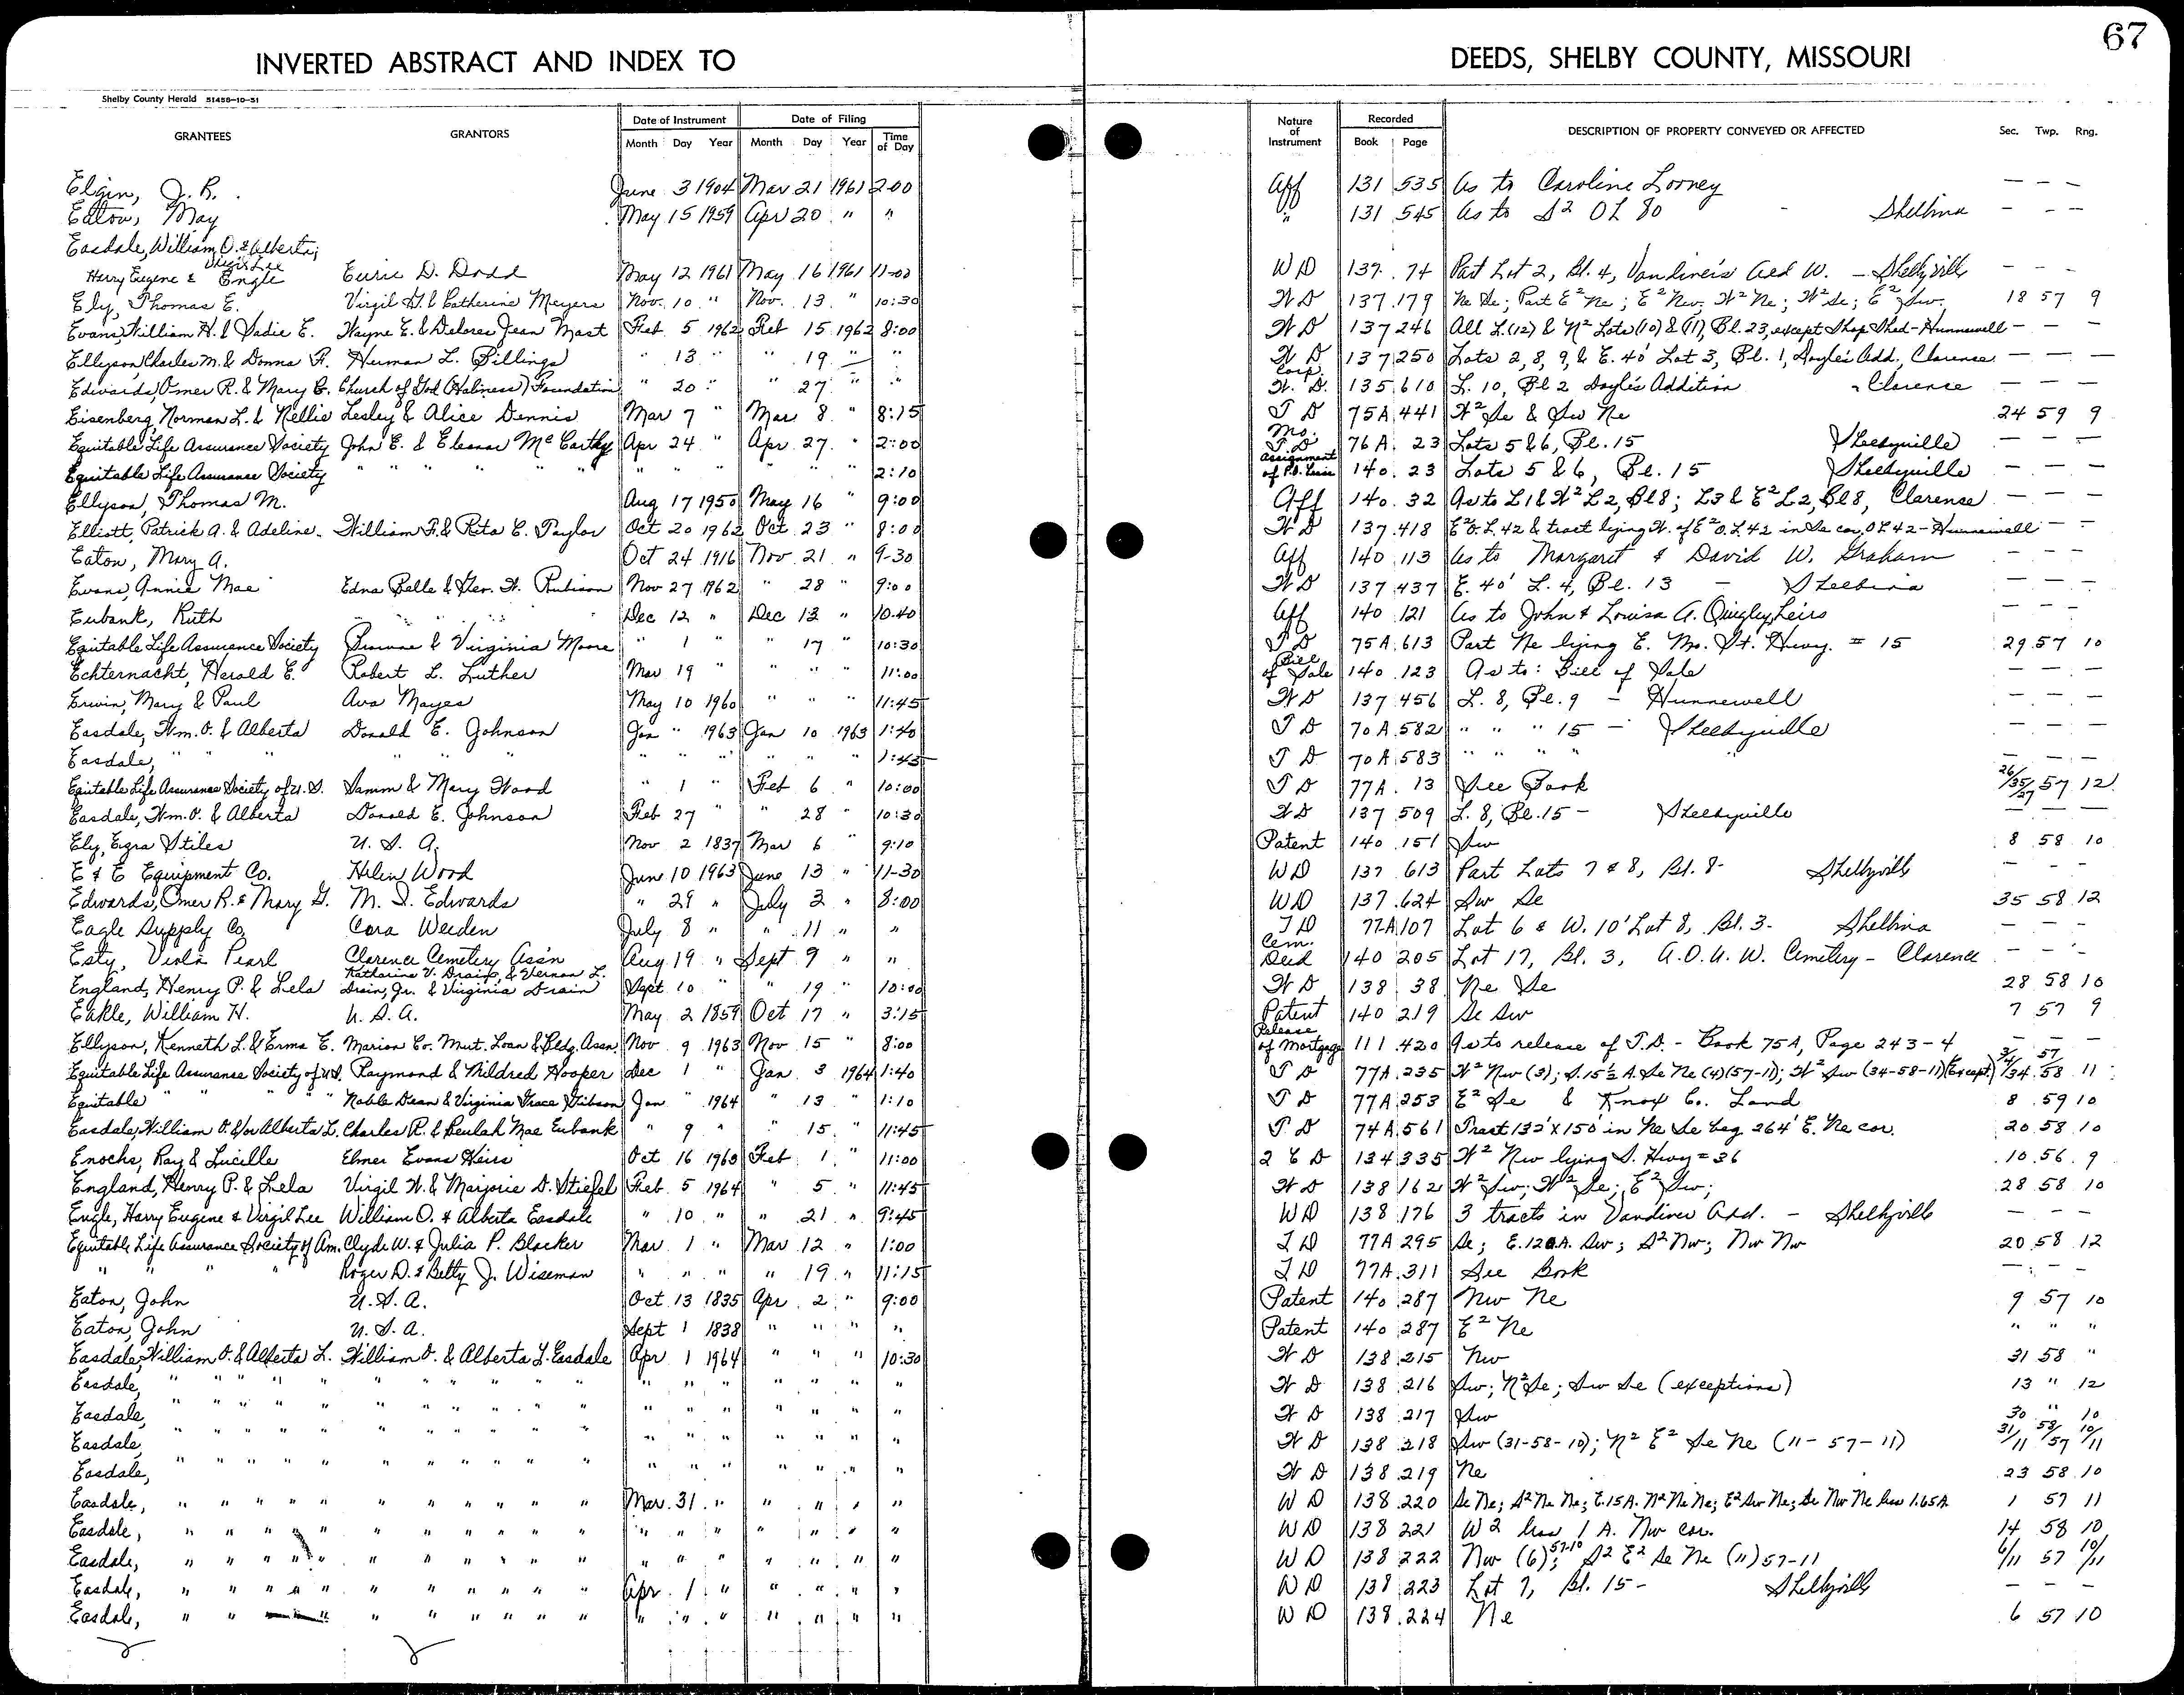 67
INVERTED ABSTRACT AND INDEX TO DEEDS, SHELBY COUNTY, MISSOURI
Shelby County Herald 51458-10-51
GRANTEES GRANTORS Date of Instrument Date of Filing Nature of Instrument Recorded DESCRIPTION OF PROPERTY CONVEYED OR AFFECTED Sec. Twp. Rng.
Month Day Year Month Day Year Time of Day Book Page
Elgin, J. R. June 3 1904 Mar 21 1961 2:00 Aff 131 535 As to Caroline Looney — — —
Eaton, May May 15 1959 Apr 20 " " " 131 545 As to S2 OL 80 - Shelbina — — —
Easdale, William O. & Alberta;
Harry Eugene & Virgil Lee Engle Eurie D. Dodd May 12 1961 May 16 1961 11-00 WD 137 74 Part Lot 2, Bl. 4, Vandiver's Add W. - Shelbyville — — —
Ely, Thomas E. Virgil G. & Catherine Meyers Nov. 10 " Nov. 13 " 10:30 WD 137 179 Ne Se; Part E2 Ne; E2 Nw; W2 Ne; W2 Se; E2 Sw. 18 57 9
Evans, William H. & Sadie E. Wayne E. & Delores Jean Mast Feb 5 1962 Feb 15 1962 8:00 WD 137 246 All L.(12) & N2 Lots (10) & (11), Bl. 23, except Shop Shed - Hunnewell — — —
Ellyson Charles M. & Donna F. Herman L. Billings " 13 " " 19 " " WD 137 250 Lots 2, 8, 9, & E. 40' Lot 3, Bl. 1, Doyle's Add., Clarence — — —
Edwards, Omer R. & Mary G. Church of God (Holiness) Foundation " 20 " " 27 " " Corp. W. D. 135 610 L. 10, Bl 2 Doyle's Addition - Clarence — — —
Eisenberg, Norman L. & Nellie Lesley & Alice Dennis Mar 7 " Mar 8 " 8:15 TD 75A 441 W2 Se & Sw Ne 24 59 9
Equitable Life Assurance Society John E. & Eleanor McCarthy Apr 24 " Apr 27 " 2:00 Mo. T.D 76A 23 Lots 5 & 6, Bl. 15 Shelbyville — — —
Equitable Life Assurance Society " " " " " " " " " " 2:10 Assignment of 140 23 Lots 5 & 6, Bl. 15 Shelbyville — — —
Ellyson, Thomas M. Aug 17 1950 May 16 " 9:00 Aff 140 32 As to L1 & W2 L2, Bl 8; L3 & E2 L2, Bl 8, Clarence — — —
Elliott, Patrick A. & Adeline William F. & Rita C. Taylor Oct 20 1962 Oct 23 " 8:00 WD 137 418 E2 O.L. 42 & tract lying W. of E2 O.L. 42 in Se cor. OL 42 - Hunnewell — —
Eaton, Mary A. Oct 24 1916 Nov 21 " 9-30 Aff 140 113 As to Margaret & David W. Graham — — —
Evans, Annie Mae Edna Belle & Geo. W. Rubison Nov 27 1962 " 28 " 9:00 WD 137 437 E. 40' L. 4, Bl. 13 - Shelbina — — —
Eubank, Ruth Dec 12 " Dec 13 " 10:40 Aff 140 121 As to John & Louisa A. Quigley Heirs — — —
Equitable Life Assurance Society & Virginia Moore " 1 " " 17 " 10:30 TD 75A 613 Part Ne lying E. Mo. St. Hwy. # 15 29 57 10
Echternacht, Herald E. Robert L. Luther Mar 19 " " " " 11:00 Bill of Sale 140 123 As to: Bill of Sale — — —
Erwin, Mary & Paul Ava Mayes May 10 1960 " " " 11:45 WD 137 456 L. 8, Bl. 9 - Hunnewell — — —
Easdale, Wm. O. & Alberta Donald E. Johnson Jan " 1963 Jan 10 1963 1:40 TD 70A 582 " " " 15 - Shelbyville — — —
Easdale, " " " " " " " " " " " " 1:45 TD 70A 583 " " " " " — — —
Equitable Life Assurance Society of U.S. Samm & Mary Wood " 1 " Feb 6 " 10:00 TD 77A 13 See Book 26/35/27 57 12
Easdale, Wm. O. & Alberta Donald E. Johnson Feb 27 " " 28 " 10:30 WD 137 509 L. 8, Bl. 15 - Shelbyville — — —
Ely, Ezra Stiles U. S. A. Nov 2 1837 Mar 6 " 9:10 Patent 140 151 Sw 8 58 10
E & E Equipment Co. Helen Wood June 10 1963 June 13 " 11-30 WD 137 613 Part Lots 7 & 8, Bl. 8- Shelbyville — — —
Edwards, Omer R. & Mary G. M. I. Edwards " 29 " July 2 " 8:00 WD 137 624 Sw Se 35 58 12
Eagle Supply Co. Cora Weiden July 8 " " 11 " " TD 77A 107 Lot 6 & W. 10' Lot 8, Bl. 3- Shelbina — — —
Esty, Viola Pearl Clarence Cemetery Ass'n Aug 19 " Sept 9 " " Cem. Deed 140 205 Lot 17, Bl. 3, A.O.U.W. Cemetery - Clarence — — —
England, Henry P. & Lela Katharine V. Drain, & Vernon L. Drain, Jr. & Virginia Drain Sept 10 " " 19 " 10:00 WD 138 38 Ne Se 28 58 10
Eakle, William H. U. S. A. May 2 1859 Oct 17 " 3:15 Patent 140 219 Se Sw 7 57 9
Ellyson, Kenneth L. & Erma E. Marion Co. Mut. Loan & Bldg. Assn. Nov 9 1963 Nov 15 " 8:00 Release of Mortgage 111 420 As to release of T.D. - Book 75A, Page 243-4 — — —
Equitable Life Assurance Society of U.S. Raymond & Mildred Hooper Dec 1 " Jan 3 1964 1:40 TD 77A 235 W2 Nw (3); S. 15½ A. Se Ne (4) (57-11); W2 Sw (34-58-11) (Except) 3/4/34 57/58 11
Equitable " " " " Noble Dean & Virginia Grace Gibson Jan " 1964 " 13 " 1:10 TD 77A 253 E2 Se & Knox Co. Land 8 59 10
Easdale, William O. &/or Alberta L. Charles R. & Beulah Mae Eubank " 9 " " 15 " 11:45 TD 74A 561 Tract 132' X 150' in Ne Se beg. 264' E. Ne cor. 20 58 10
Enochs, Ray & Lucille Elmer Evans Heirs Oct 16 1963 Feb 1 " 11:00 2 C D 134 335 W2 Nw lying S. Hwy # 36 10 56 9
England, Henry P. & Lela Virgil W. & Marjorie D. Stiefel Feb 5 1964 " 5 " 11:45 WD 138 162 W2 Sw; W2 Se; E2 Sw; 28 58 10
Engle, Harry Eugene & Virgil Lee William O. & Alberta Easdale " 10 " " 21 " 9:45 WD 138 176 3 tracts in Vandiver Add. - Shelbyville — — —
Equitable Life Assurance Society of Am. Clyde W. & Julia P. Blacker Mar 1 " Mar 12 " 1:00 TD 77A 295 Se; E. 120A. Sw; S2 Nw; Nw Nw 20 58 12
" " " " Roger D. & Betty J. Wiseman " " " " 19 " 11:15 TD 77A 311 See Book — — —
Eaton, John U. S. A. Oct 13 1835 Apr 2 " 9:00 Patent 140 287 Nw Ne 9 57 10
Eaton, John U. S. A. Sept 1 1838 " " " " Patent 140 287 E2 Ne " " "
Easdale, William O. & Alberta L. William O. & Alberta L. Easdale Apr 1 1964 " " " 10:30 WD 138 215 Nw 31 58 "
Easdale, " " " " " " " " " " " " " " " " " WD 138 216 Sw; N2 Se; Sw Se (exceptions) 13 " 12
Easdale, " " " " " " " " " " " " " " " " " WD 138 217 Sw 30 " 10
Easdale, " " " " " " " " " " " " " " " " " WD 138 218 Sw (31-58-10); N2 E2 Se Ne (11-57-11) 31/11 58/57 10/11
Easdale, " " " " " " " " " " " " " " " " " WD 138 219 Ne 23 58 10
Easdale, " " " " " " " " " " Mar. 31 " " " " " WD 138 220 Se Ne; S2 Ne Ne; E. 15A. N2 Ne Ne; E2 Sw Ne; Se Nw Ne less 1.65A 1 57 11
Easdale, " " " " " " " " " " " " " " " " " WD 138 221 W2 less 1 A. Nw cor. 14 58 10
Easdale, " " " " " " " " " " " " " " " " " WD 138 222 Nw (6) 57-10; S2 E2 Se Ne (11) 57-11 6/11 57 10/11
Easdale, " " " " " " " " " " Apr. 1 " " " " " WD 138 223 Lot 7, Bl. 15- Shelbyville — — —
Easdale, " " " " " " " " " " " " " " " " " WD 138 224 Ne 6 57 10